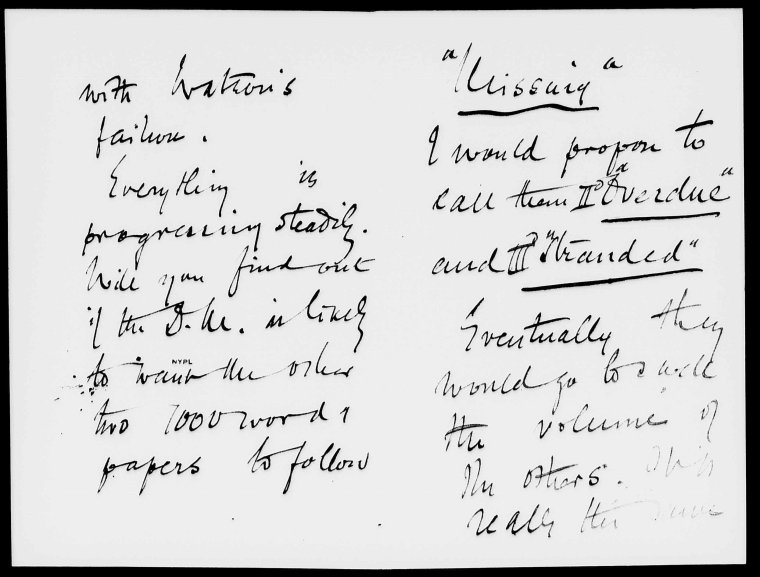 with Watson's
failure.
Everything is
progressing steadily.
Will you find out
if the D.M. is likely
NYPL
to want the other
two 7000 words
papers to follow
"Missing"
I would propose to
call them II "Overdue"
and III "Stranded"
Eventually they
would go to swell
the volume of
the others. It is
really the same